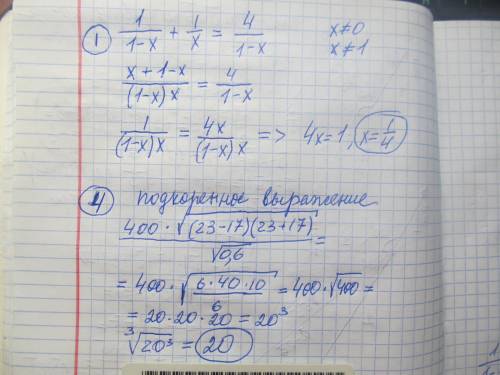 ① 1/(1-x) + 1/x = 4/(1-x) x≠0
x≠1
(x+1-x)/((1-x)x) = 4/(1-x)
1/((1-x)x) = 4x/((1-x)x) => 4x=1, x=1/4
④ подкоренное выражение
400·√((23-17)(23+17))/√0,6 =
= 400·√(6·40·10/6) = 400·√400 =
= 20·20·20 = 20³
³√20³ = 20